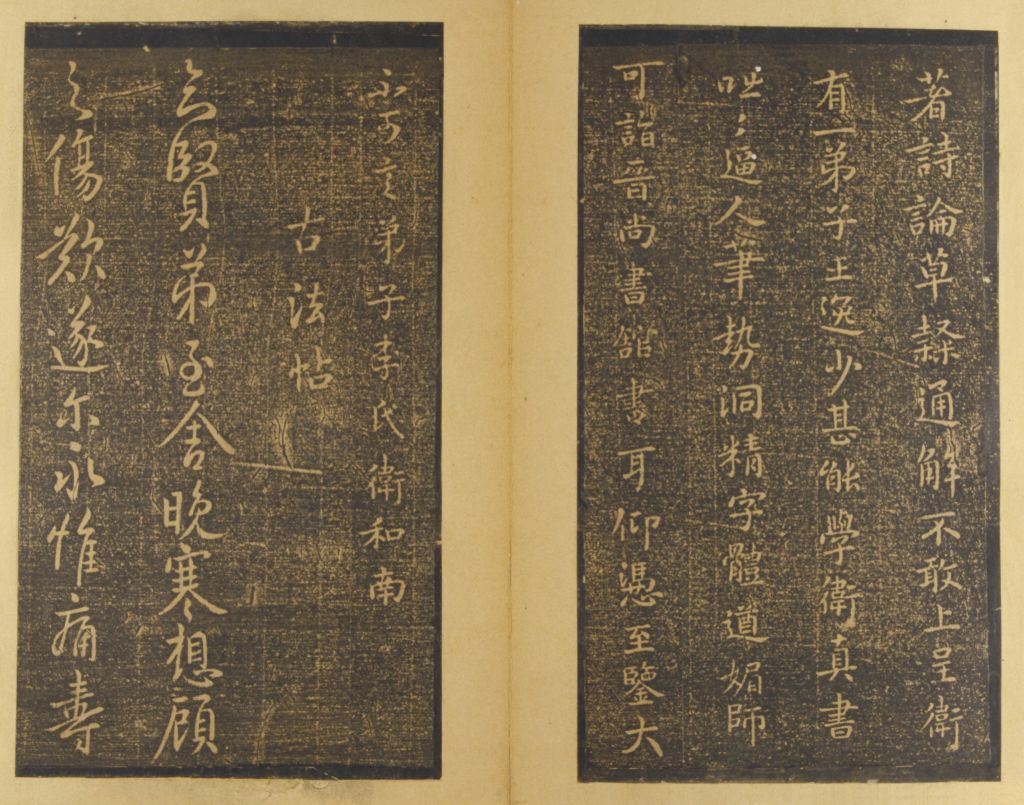 著詩論草隸通解不敢上呈衛
有一弟子王逸少甚能學衛真書
咄咄逼人筆勢洞精字體遒媚師
可詣晉尚書舘書耳仰憑至鑒大
不可言弟子李氏衛和南
古法帖
賢弟至舍晚寒想顧
之傷歎遂尔永惟痛壽